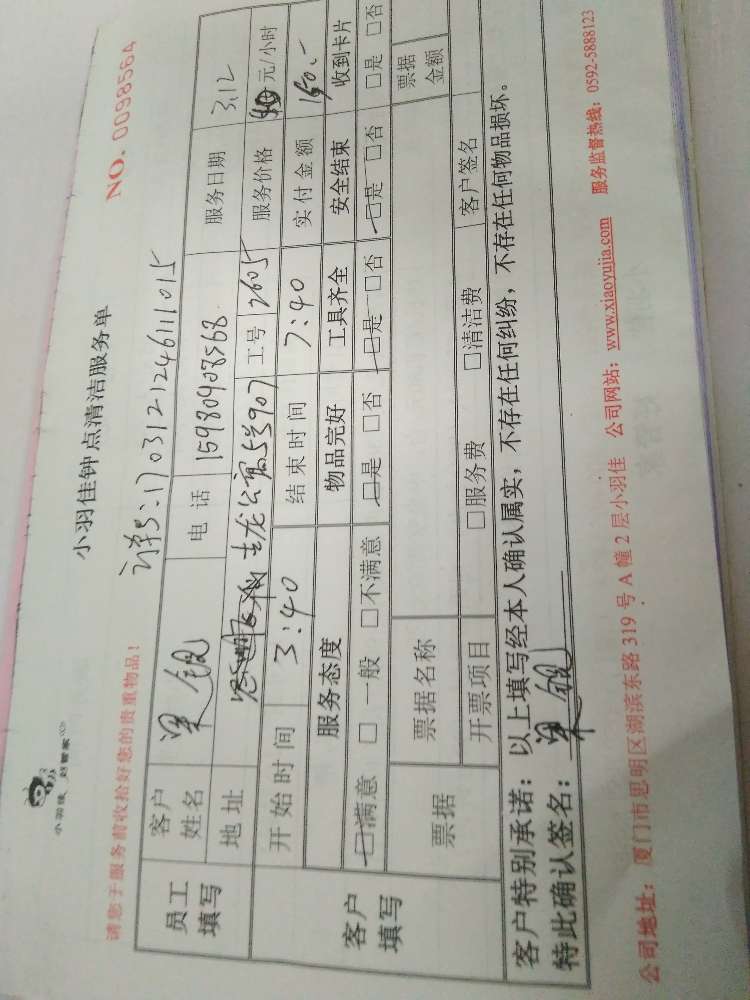 小羽佳 好管家
小羽佳钟点清洁服务单
请您于服务前收拾好您的贵重物品！
NO. 0098564
170312124611015
员工填写 客户姓名 电话 15980908568 服务日期 3.12
地址 吉龙公寓 907 工号 2605 服务价格 元/小时
客户填写 开始时间 3:40 结束时间 7:40 实付金额 160.-
服务态度 物品完好 工具齐全 安全结束 收到卡片
□满意 □一般 □不满意 □是 □否 □是 □否 □是 □否 □是 □否
票据 票据名称 票据金额
开票项目 □服务费 □清洁费 客户签名
客户特别承诺：以上填写经本人确认属实，不存在任何纠纷，不存在任何物品损坏。
特此确认签名：
公司地址：厦门市思明区湖滨东路 319 号 A 幢 2 层小羽佳 公司网站：www.xiaoyujia.com 服务监督热线：0592-5888123